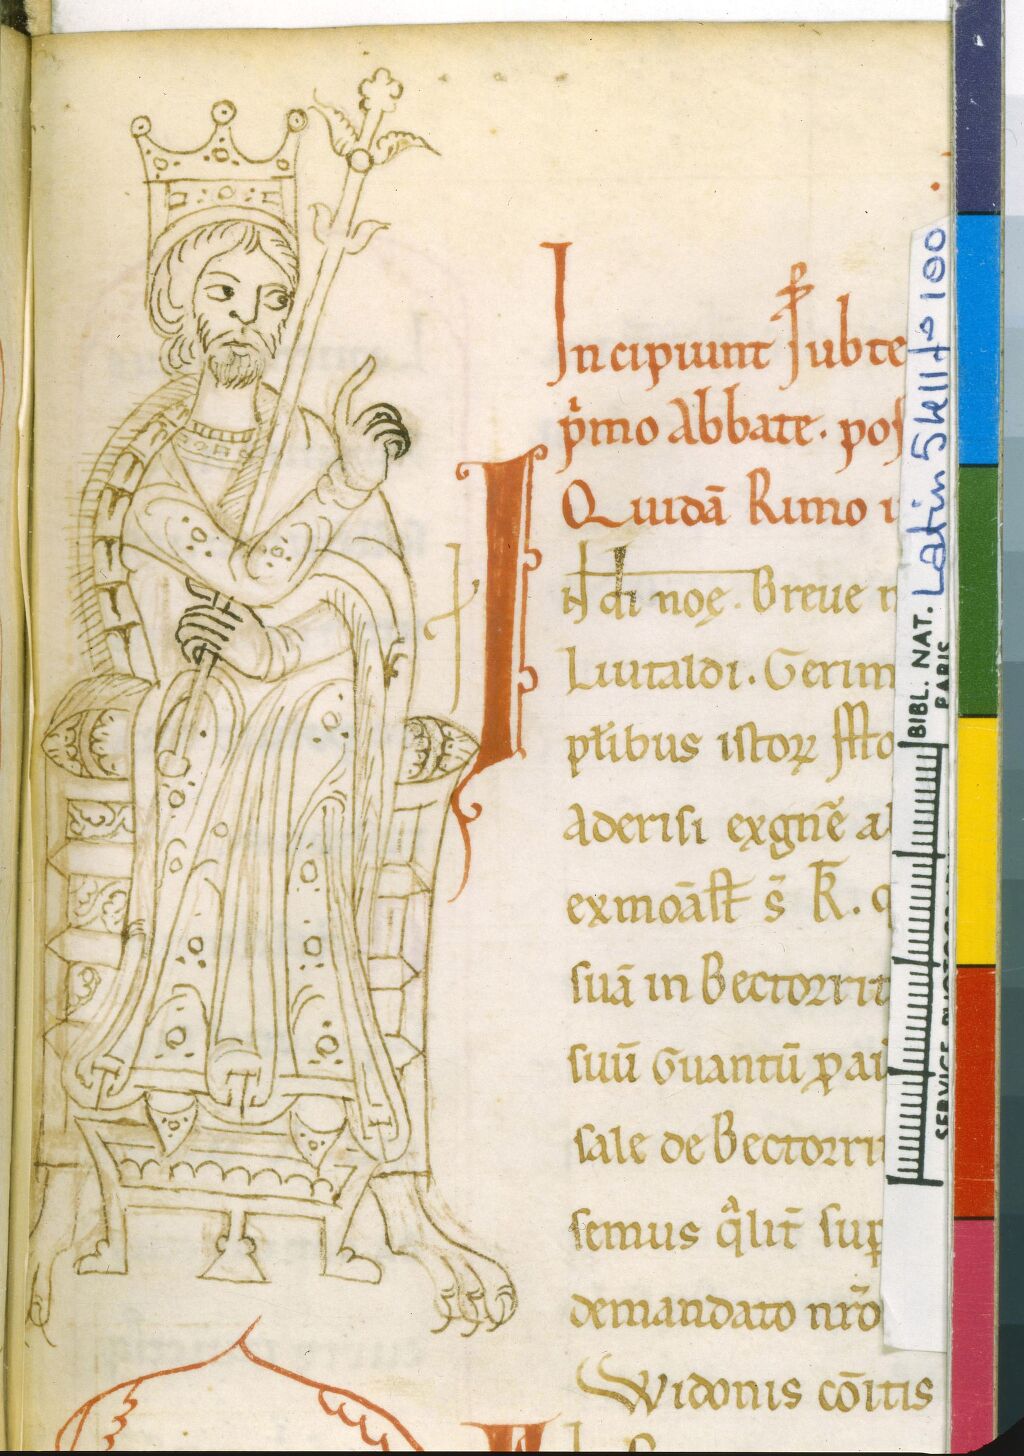 Incipiunt Iubte
p̄mo abbate. pos
Quidā Rimo
In dī noę. Breue n
Liutaldi. Gerim
pl̄ibus istoꝝ
Aderisi exgn̄e a
exmoāst̄ s̄ k̄. q
suā in Bectorrit
suū Guantū ꝑ ai
sale de Bectorri
semus q̄lit̄ sup
demandato nr̄o
Widonis cōitis
Latin 5411 f° 100
BIBL. NAT.
PARIS
SERVICE PHOTOGR